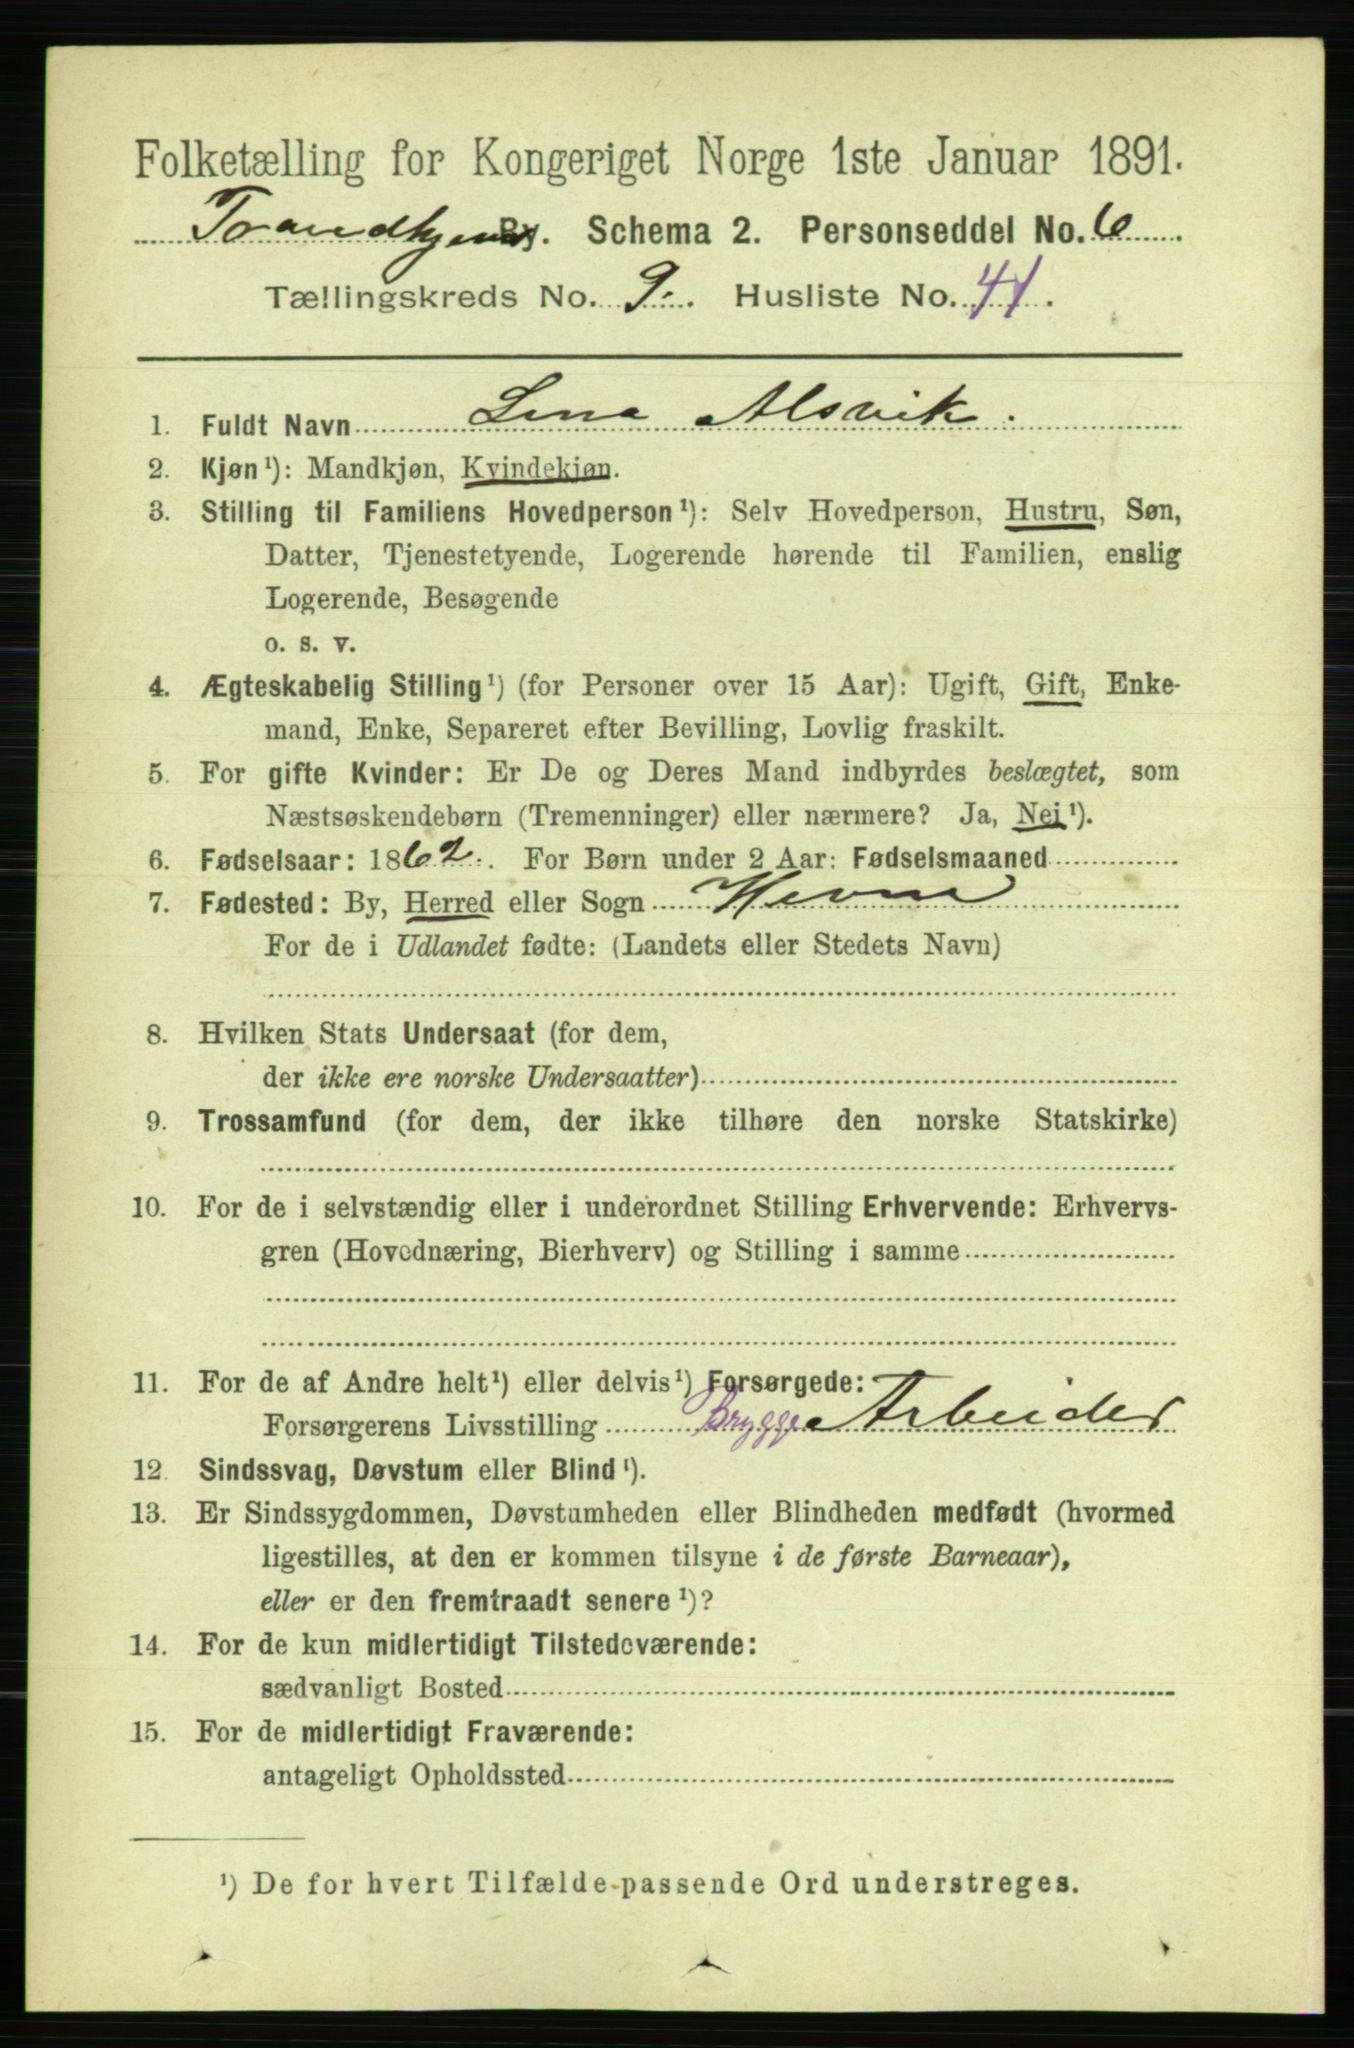 Folketælling for Kongeriget Norge 1ste Januar 1891.
Trondhjems By. Schema 2. Personseddel No. 6
Tællingskreds No. 9. Husliste No. 41.
1. Fuldt Navn Lina Alsvik.
2. Kjøn¹): Mandkjøn, Kvindekjøn.
3. Stilling til Familiens Hovedperson¹): Selv Hovedperson, Hustru, Søn,
Datter, Tjenestetyende, Logerende hørende til Familien, enslig
Logerende, Besøgende
o. s. v.
4. Ægteskabelig Stilling¹) (for Personer over 15 Aar): Ugift, Gift, Enke-
mand, Enke, Separeret efter Bevilling, Lovlig fraskilt.
5. For gifte Kvinder: Er De og Deres Mand indbyrdes beslægtet, som
Næstsøskendebørn (Tremenninger) eller nærmere? Ja, Nei¹).
6. Fødselsaar: 1862. For Børn under 2 Aar: Fødselsmaaned
7. Fødested: By, Herred eller Sogn Hevne
For de i Udlandet fødte: (Landets eller Stedets Navn)
8. Hvilken Stats Undersaat (for dem,
der ikke ere norske Undersaatter)
9. Trossamfund (for dem, der ikke tilhøre den norske Statskirke)
10. For de i selvstændig eller i underordnet Stilling Erhvervende: Erhvervs-
gren (Hovednæring, Bierhverv) og Stilling i samme
11. For de af Andre helt¹) eller delvis¹) Forsørgede:
Forsørgerens Livsstilling Brygge Arbeider
12. Sindssvag, Døvstum eller Blind¹).
13. Er Sindssygdommen, Døvstumheden eller Blindheden medfødt (hvormed
ligestilles, at den er kommen tilsyne i de første Barneaar),
eller er den fremtraadt senere¹)?
14. For de kun midlertidigt Tilstedeværende:
sædvanligt Bosted
15. For de midlertidigt Fraværende:
antageligt Opholdssted
¹) De for hvert Tilfælde passende Ord understreges.